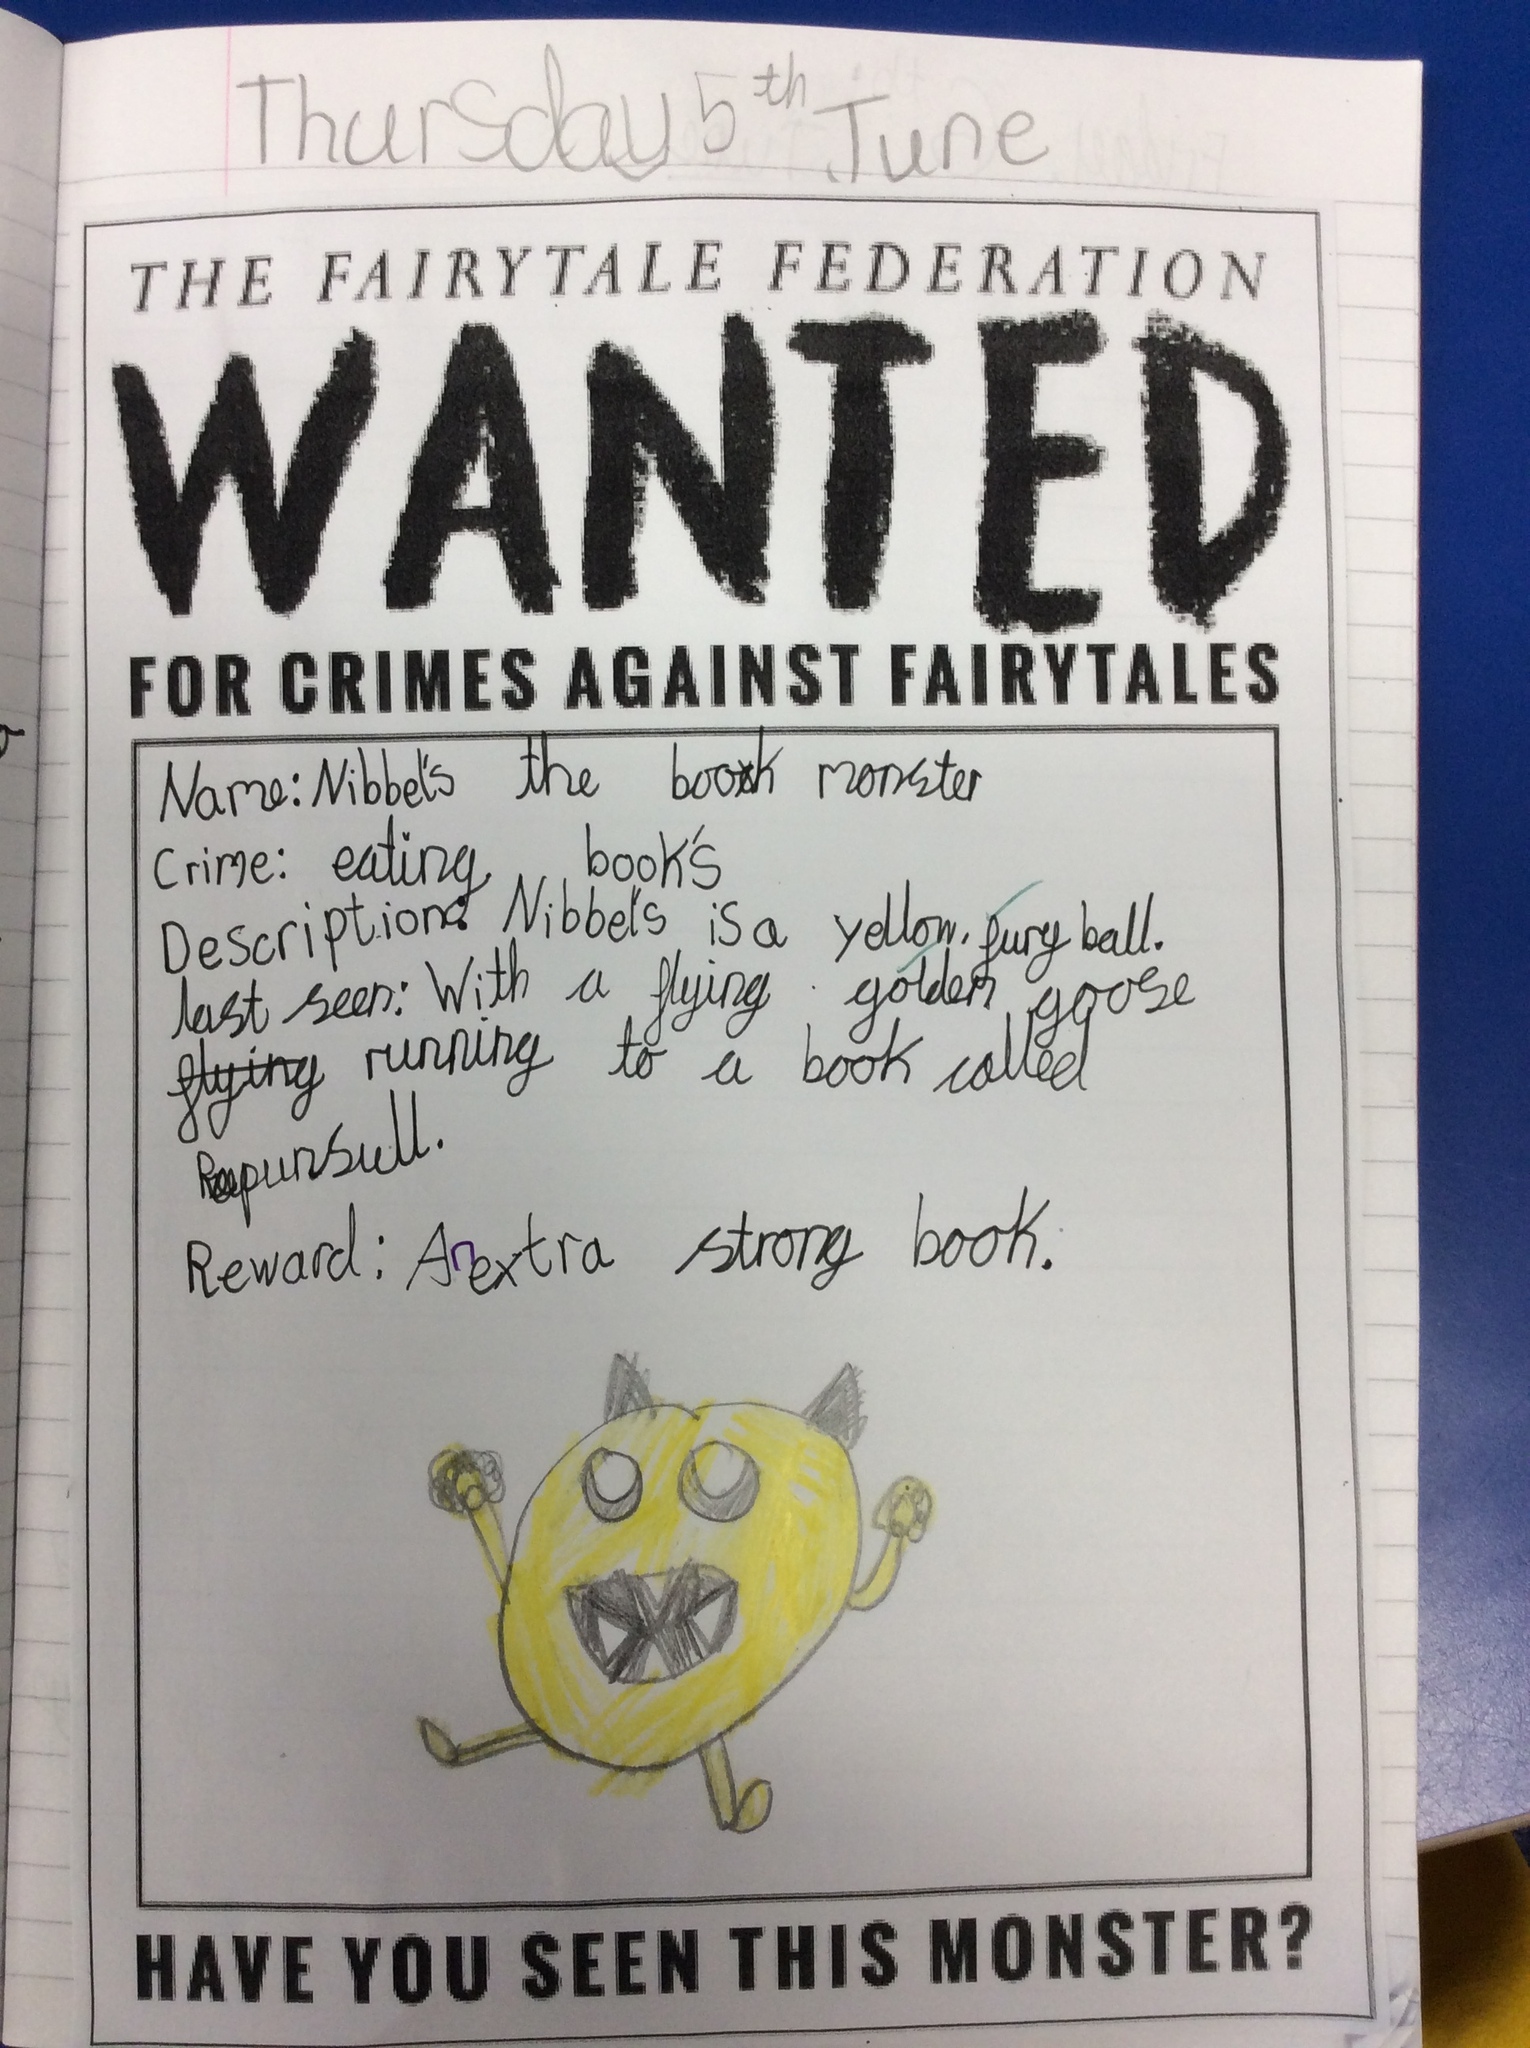 Thursday 5th June
THE FAIRYTALE FEDERATION
WANTED
FOR CRIMES AGAINST FAIRYTALES
Name: Nibbel's the book monster
Crime: eating book's
Description: Nibbel's is a yellow. fury ball.
last seen: With a flying golden goose
flying running to a book called
Rapunsull.
Reward: An extra strong book.
HAVE YOU SEEN THIS MONSTER?